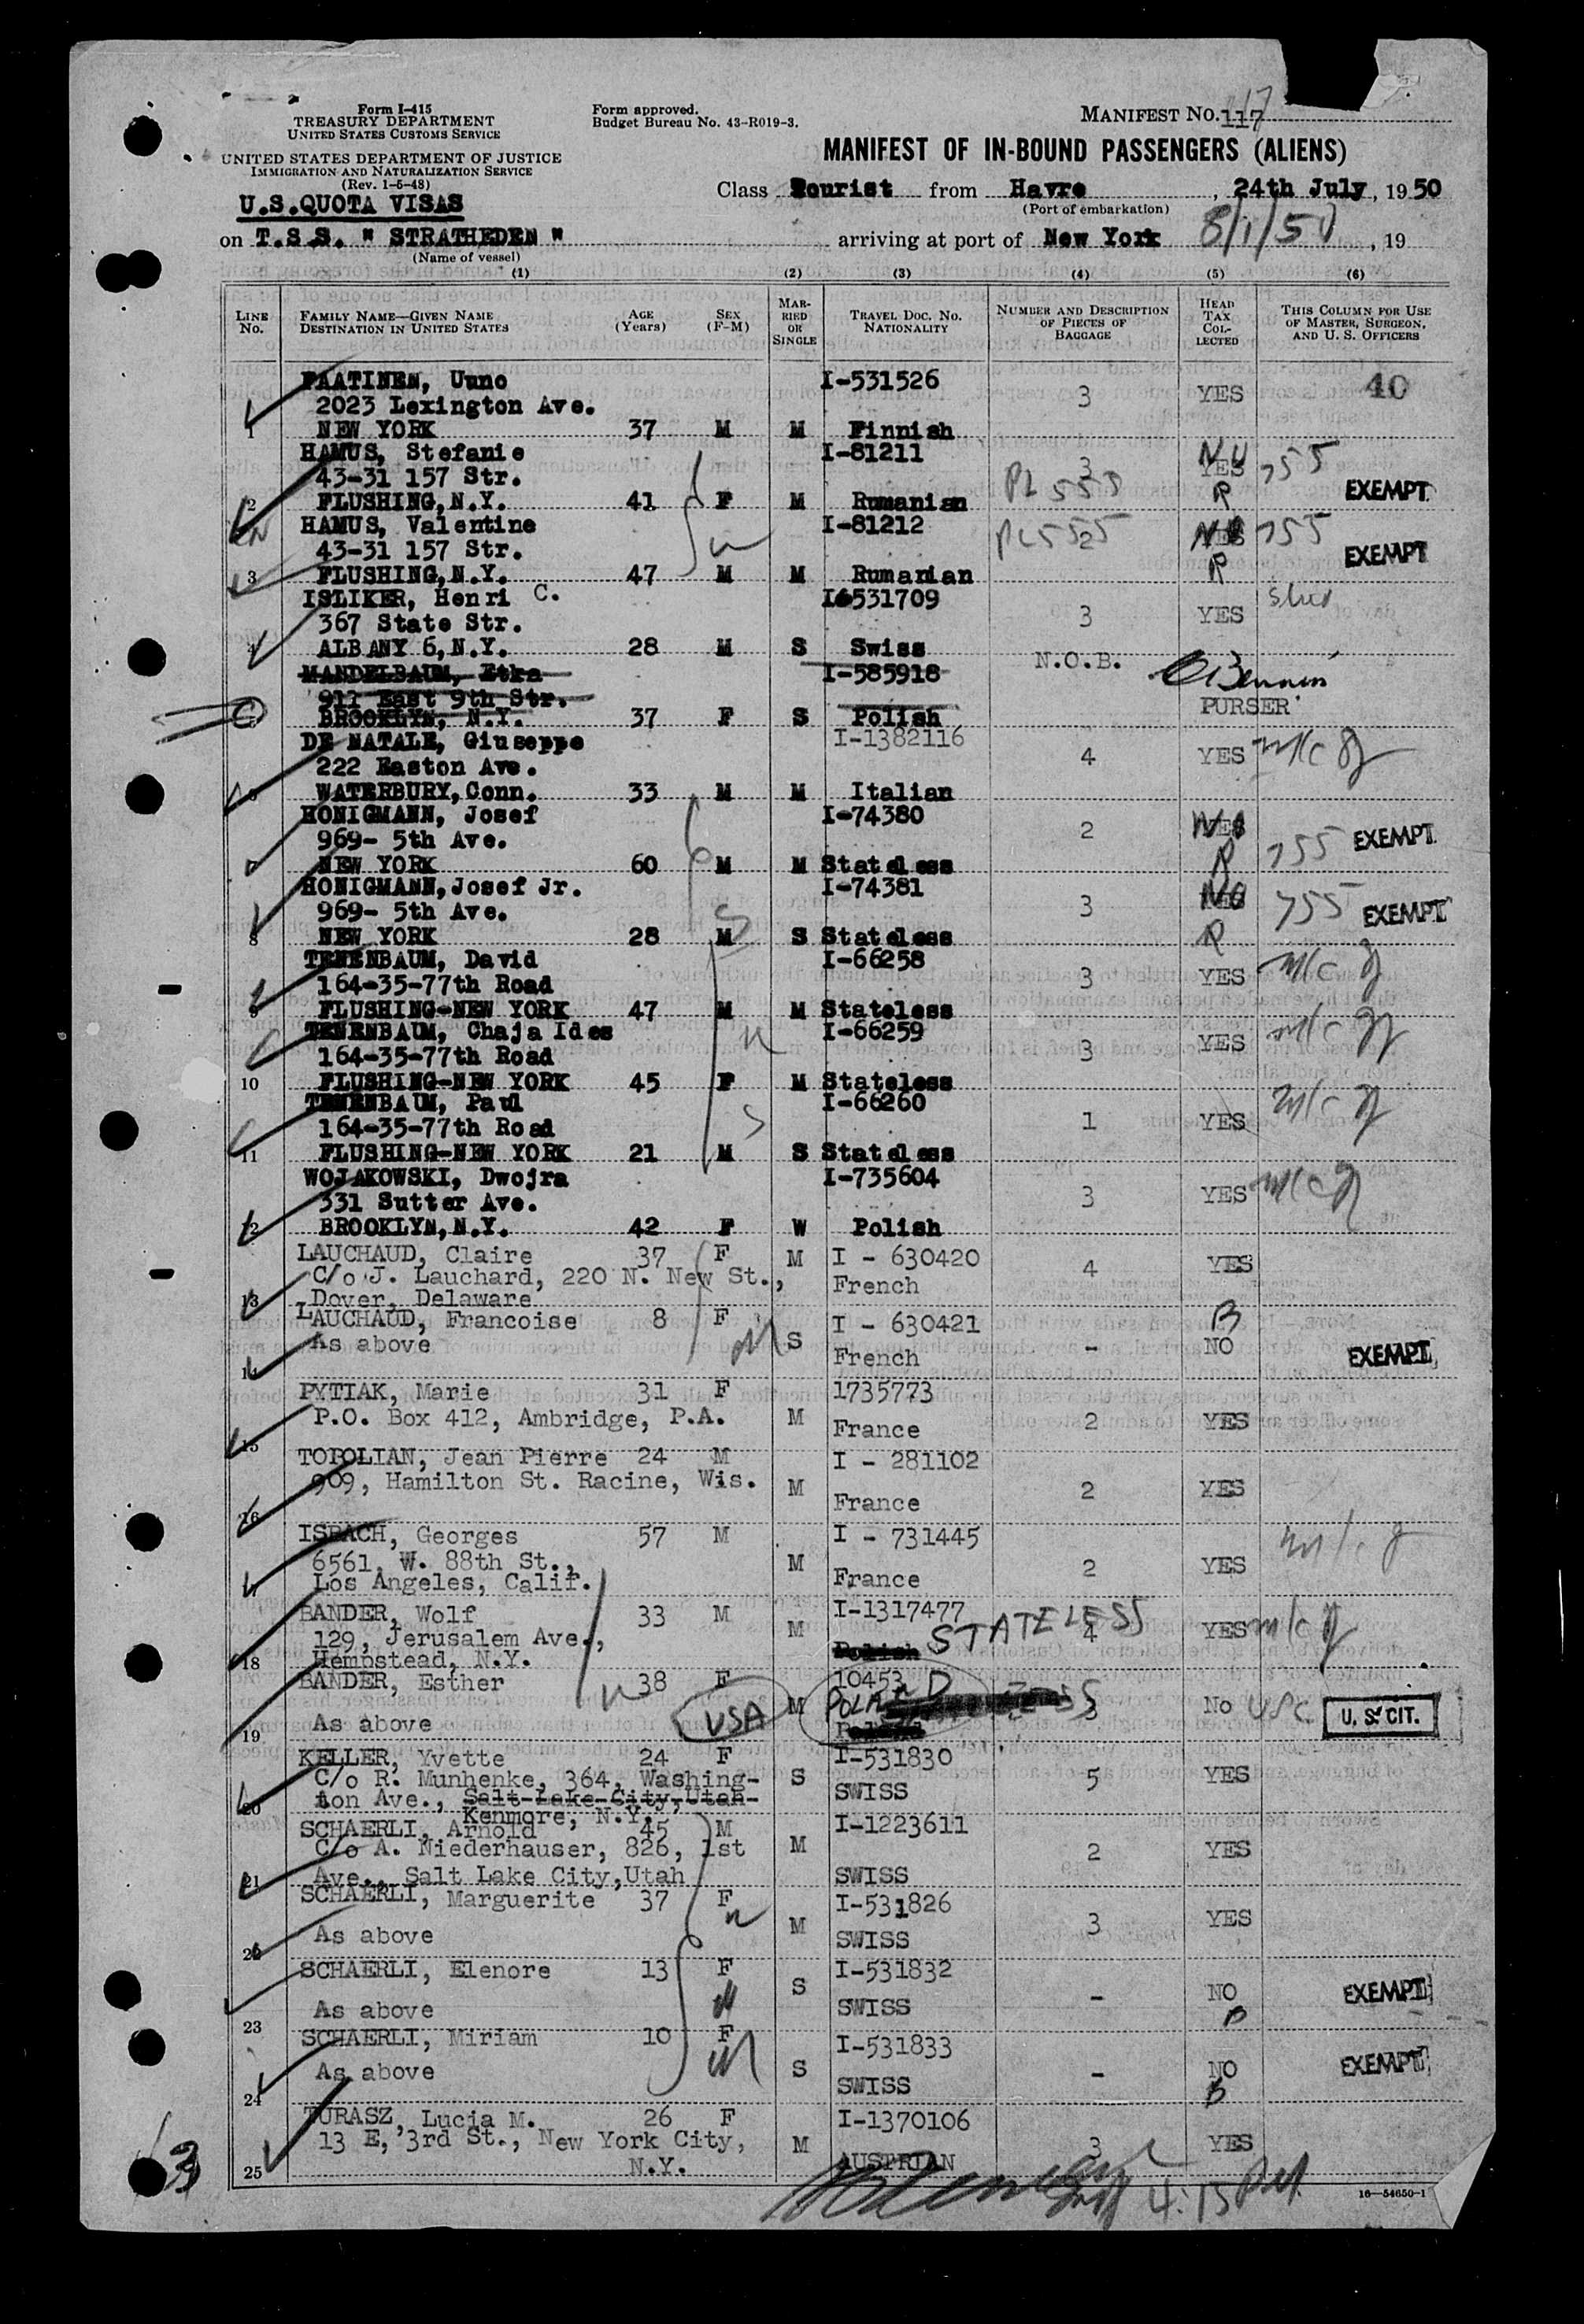 Form I-415
TREASURY DEPARTMENT
UNITED STATES CUSTOMS SERVICE
UNITED STATES DEPARTMENT OF JUSTICE
IMMIGRATION AND NATURALIZATION SERVICE
(Rev. 1-5-48)
Form approved.
Budget Bureau No. 43-R019-3.
MANIFEST NO. 117
MANIFEST OF IN-BOUND PASSENGERS (ALIENS)
Class Tourist from Havre, 24th July, 1950
(Port of embarkation)
U.S.QUOTA VISAS
on T.S.S. " STRATHEDEN "
(Name of vessel)
arriving at port of New York 8/1/50, 19
(1) (2) (3) (4) (5) (6)
LINE No. FAMILY NAME—GIVEN NAME DESTINATION IN UNITED STATES AGE (Years) SEX (F-M) MARRIED OR SINGLE TRAVEL DOC. NO. NATIONALITY NUMBER AND DESCRIPTION OF PIECES OF BAGGAGE HEAD TAX COLLECTED THIS COLUMN FOR USE OF MASTER, SURGEON, AND U. S. OFFICERS
PAATINEN, Uuno I-531526 3 YES 40
2023 Lexington Ave.
1 NEW YORK 37 M M Finnish
HAMUS, Stefanie I-81211 3 YES 755
43-31 157 Str. PL 555 EXEMPT
2 FLUSHING, N.Y. 41 F M Rumanian
HAMUS, Valentine I-81212 PL 555 2 YES 755
43-31 157 Str. EXEMPT
3 FLUSHING, N.Y. 47 M M Rumanian
ISLIKER, Henri C. I-531709 3 YES
367 State Str.
4 ALBANY 6, N.Y. 28 M S Swiss
MANDELBAUM, Etka I-585918 N.O.B.
911 East 9th Str.
BROOKLYN, N.Y. 37 F S Polish PURSER
DE NATALE, Giuseppe I-1382116 4 YES
222 Easton Ave.
6 WATERBURY, Conn. 33 M M Italian
HONIGMANN, Josef I-74380 2
969- 5th Ave. 755 EXEMPT
7 NEW YORK 60 M M Stateless
HONIGMANN, Josef Jr. I-74381 3 NO 755 EXEMPT
969- 5th Ave.
8 NEW YORK 28 M S Stateless
TENENBAUM, David I-66258 3 YES
164-35-77th Road
9 FLUSHING-NEW YORK 47 M M Stateless
TENENBAUM, Chaja Ides I-66259 3 YES
164-35-77th Road
10 FLUSHING-NEW YORK 45 F M Stateless
TENENBAUM, Paul I-66260 1 YES
164-35-77th Road
11 FLUSHING-NEW YORK 21 M S Stateless
WOJAKOWSKI, Dwojra I-735604 3 YES
331 Sutter Ave.
12 BROOKLYN, N.Y. 42 F W Polish
LAUCHAUD, Claire 37 F M I - 630420 4 YES
C/o J. Lauchard, 220 N. New St., French
13 Dover, Delaware
LAUCHAUD, Francoise 8 F S I - 630421 - NO
As above French EXEMPT
14
PYTIAK, Marie 31 F 1735773
P.O. Box 412, Ambridge, P.A. M France 2 YES
15
TOPOLIAN, Jean Pierre 24 M I - 281102
909, Hamilton St. Racine, Wis. M France 2 YES
16
ISBACH, Georges 57 M I - 731445
6561, W. 88th St., M France 2 YES
17 Los Angeles, Calif.
BANDER, Wolf 33 M I-1317477 4 YES
129, Jerusalem Ave., M Polish STATELESS
18 Hempstead, N.Y.
BANDER, Esther 38 F 10453 3 No USC
As above USA M POLAND U. S. CIT.
19
KELLER, Yvette 24 F I-531830
C/o R. Munhenke, 364, Washing- S SWISS 5 YES
20 ton Ave., Salt Lake City, Utah
Kenmore, N.Y.
SCHAERLI, Arnold 45 M I-1223611
C/o A. Niederhauser, 826, 1st M 2 YES
21 Ave., Salt Lake City, Utah SWISS
SCHAERLI, Marguerite 37 F I-531826
As above M SWISS 3 YES
22
SCHAERLI, Elenore 13 F I-531832
As above S SWISS - NO EXEMPT
23
SCHAERLI, Miriam 10 F I-531833
As above S SWISS - NO EXEMPT
24
TURASZ, Lucia M. 26 F I-1370106
13 E, 3rd St., New York City, M AUSTRIAN 3 YES
25 N.Y.
4:15 PM
16—54650-1